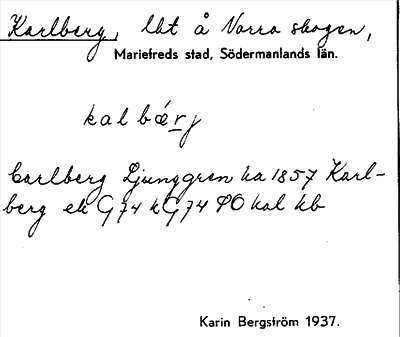 Karlberg, lht å Norra skogen,
Mariefreds stad, Södermanlands län.
kalbærj
Carlberg Ljunggren ka 1857 Karl-
berg ek G74 kG74 PO kal kb
Karin Bergström 1937.